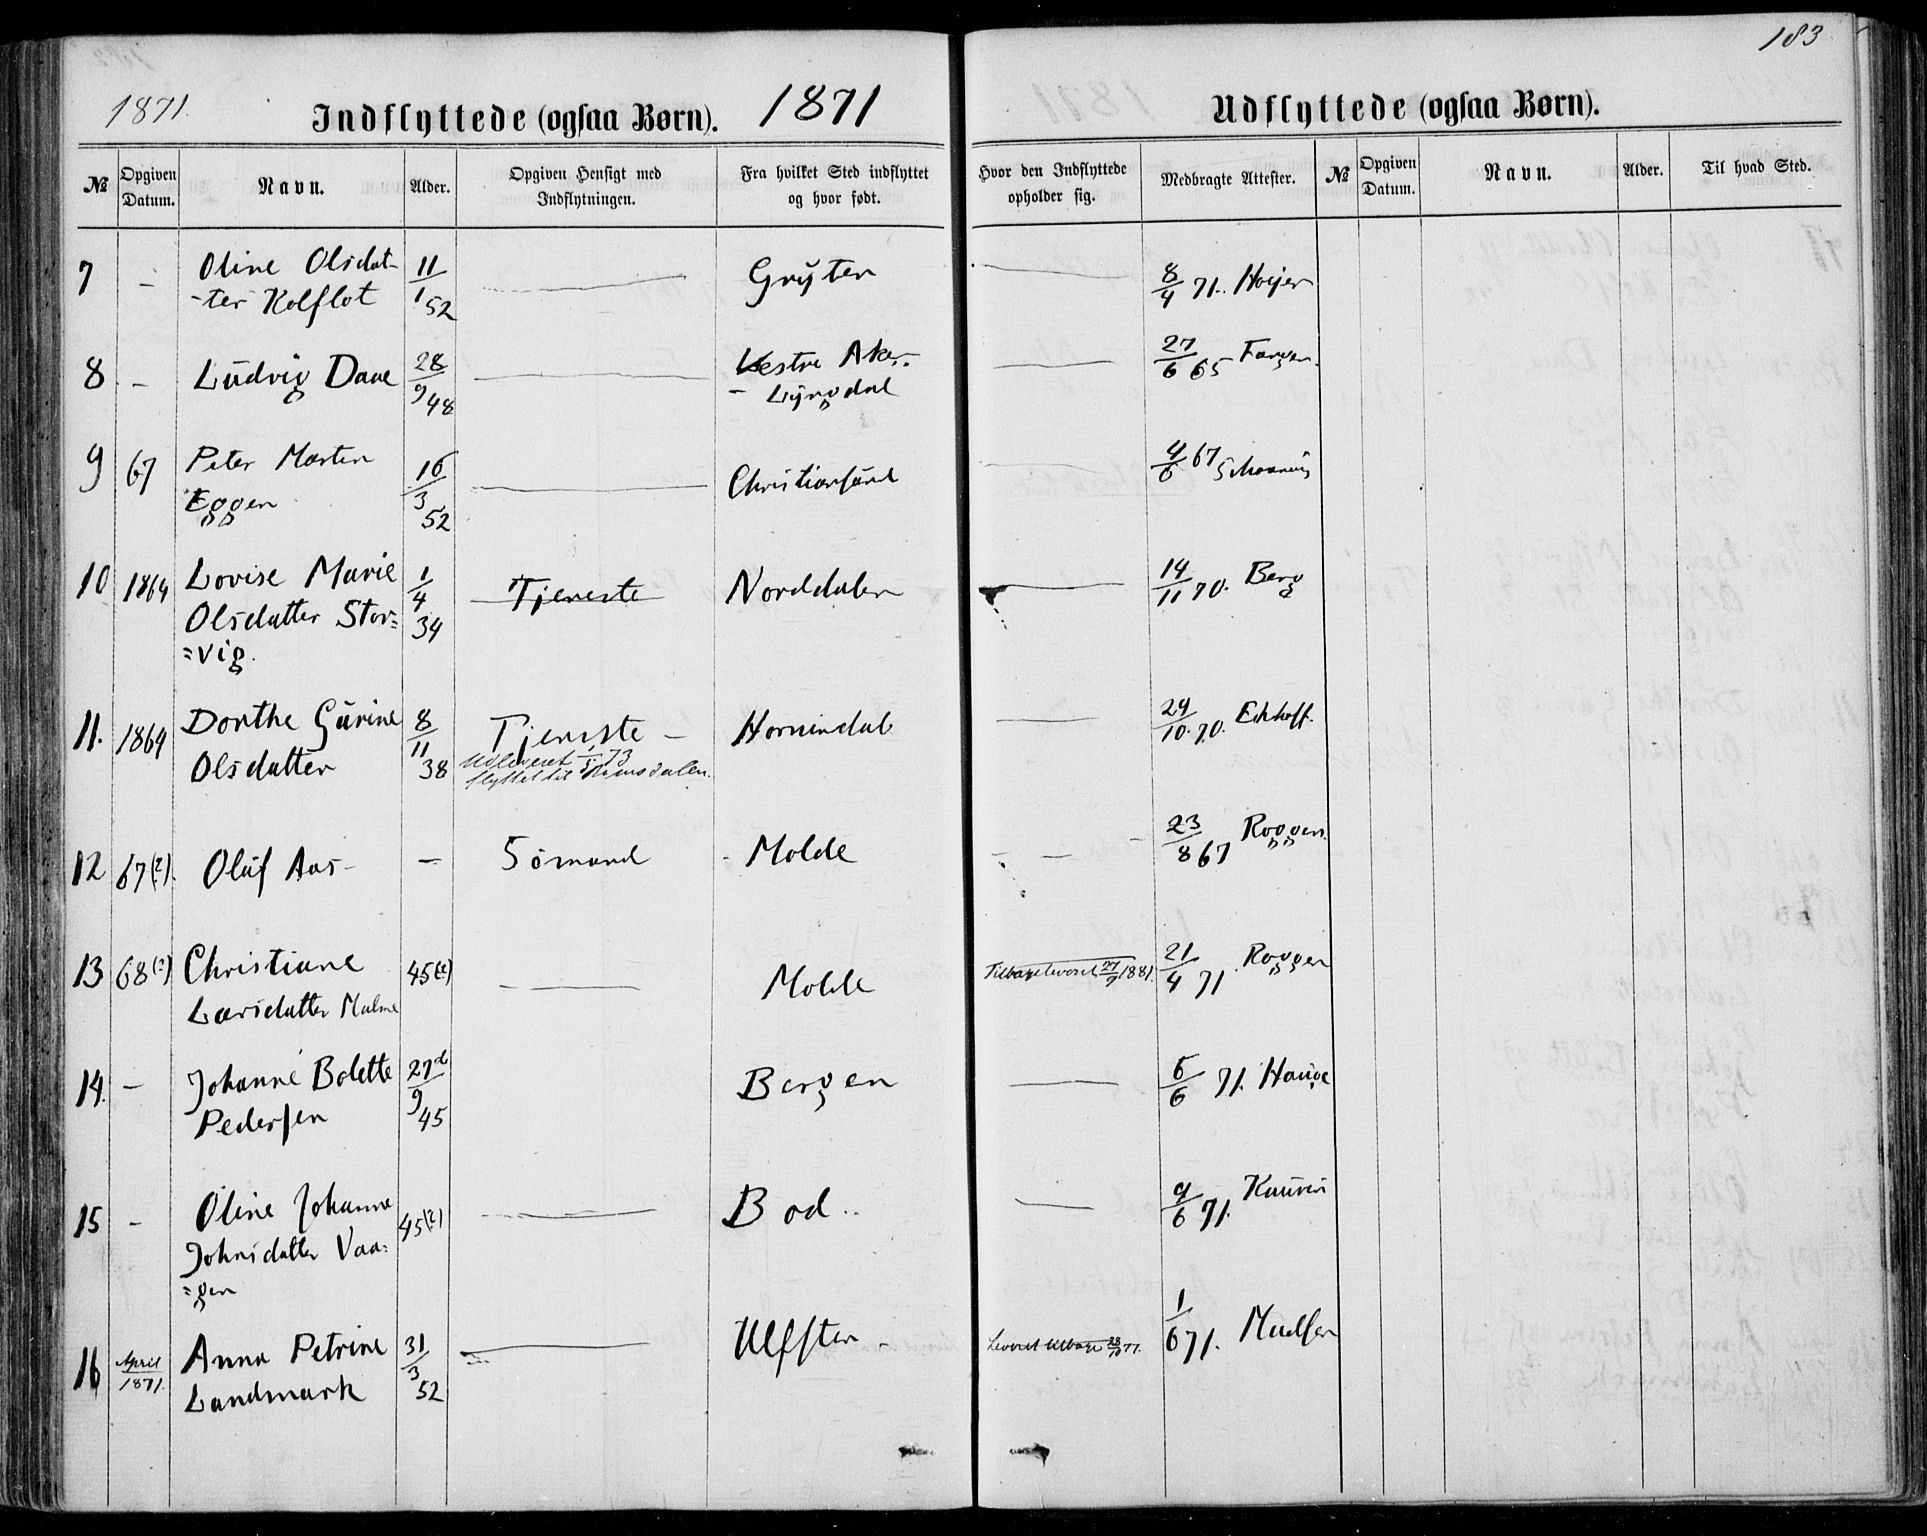 183
1871.
Indflyttede (ogsaa Børn). 1871
Udflyttede (ogsaa Børn).
№ Opgiven Datum. Navn. Alder. Opgiven Hensigt med Indflytningen. Fra hvilket Sted indflyttet og hvor født. Hvor den Indflyttede opholder sig. Medbragte Attester. № Opgiven Datum. Navn. Alder. Til hvad Sted.
7 – Oline Olsdat- 11/1 52 Gryten 8/4 71. Hoyer
-ter Kolflot
8. – Ludvig Daae 28/9 48 Vestre Aker. 27/6 65
– Lyngdal
9 67 Peter Morten 16/3 52 Christiansund 4/6 67
Eggen
10 1864 Lovise Marie 1/4 34 Tjeneste Norddalen 14/11 70. Berg
Olsdatter Stor=
=vig.
11. 1864 Dorthe Gurine 8/11 38 Tjeneste – Hornindal 29/10. 70. Eckhoff.
Olsdatter Udleveret 73
flyttet til Romsdalen.
12 67(?). Oluf Aas – – Sømand Molde 23/8 67 Roggen.
13 68(?) Christiane 45(?) Molde Tilbageleveret 27/9 1881. 21/4 71. Roggen
Larsdatter Malme
14. – Johanne Bolette 27de/9 45 Bergen 5/6 71. Hauge
Pedersen
15 – Oline Johanne 45(?) Bod.. 9/6 71. Kaurin
Johnsdatter Vaa=
=gen
16 April 1871. Anna Petrine 31/3 52 Ulfsten – Leveret tilbage 28/10 77. 1/6 71. Madsen
Landmark